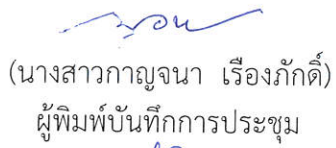 (นางสาวกาญจนา เรืองภักดิ์)
ผู้พิมพ์บันทึกการประชุม